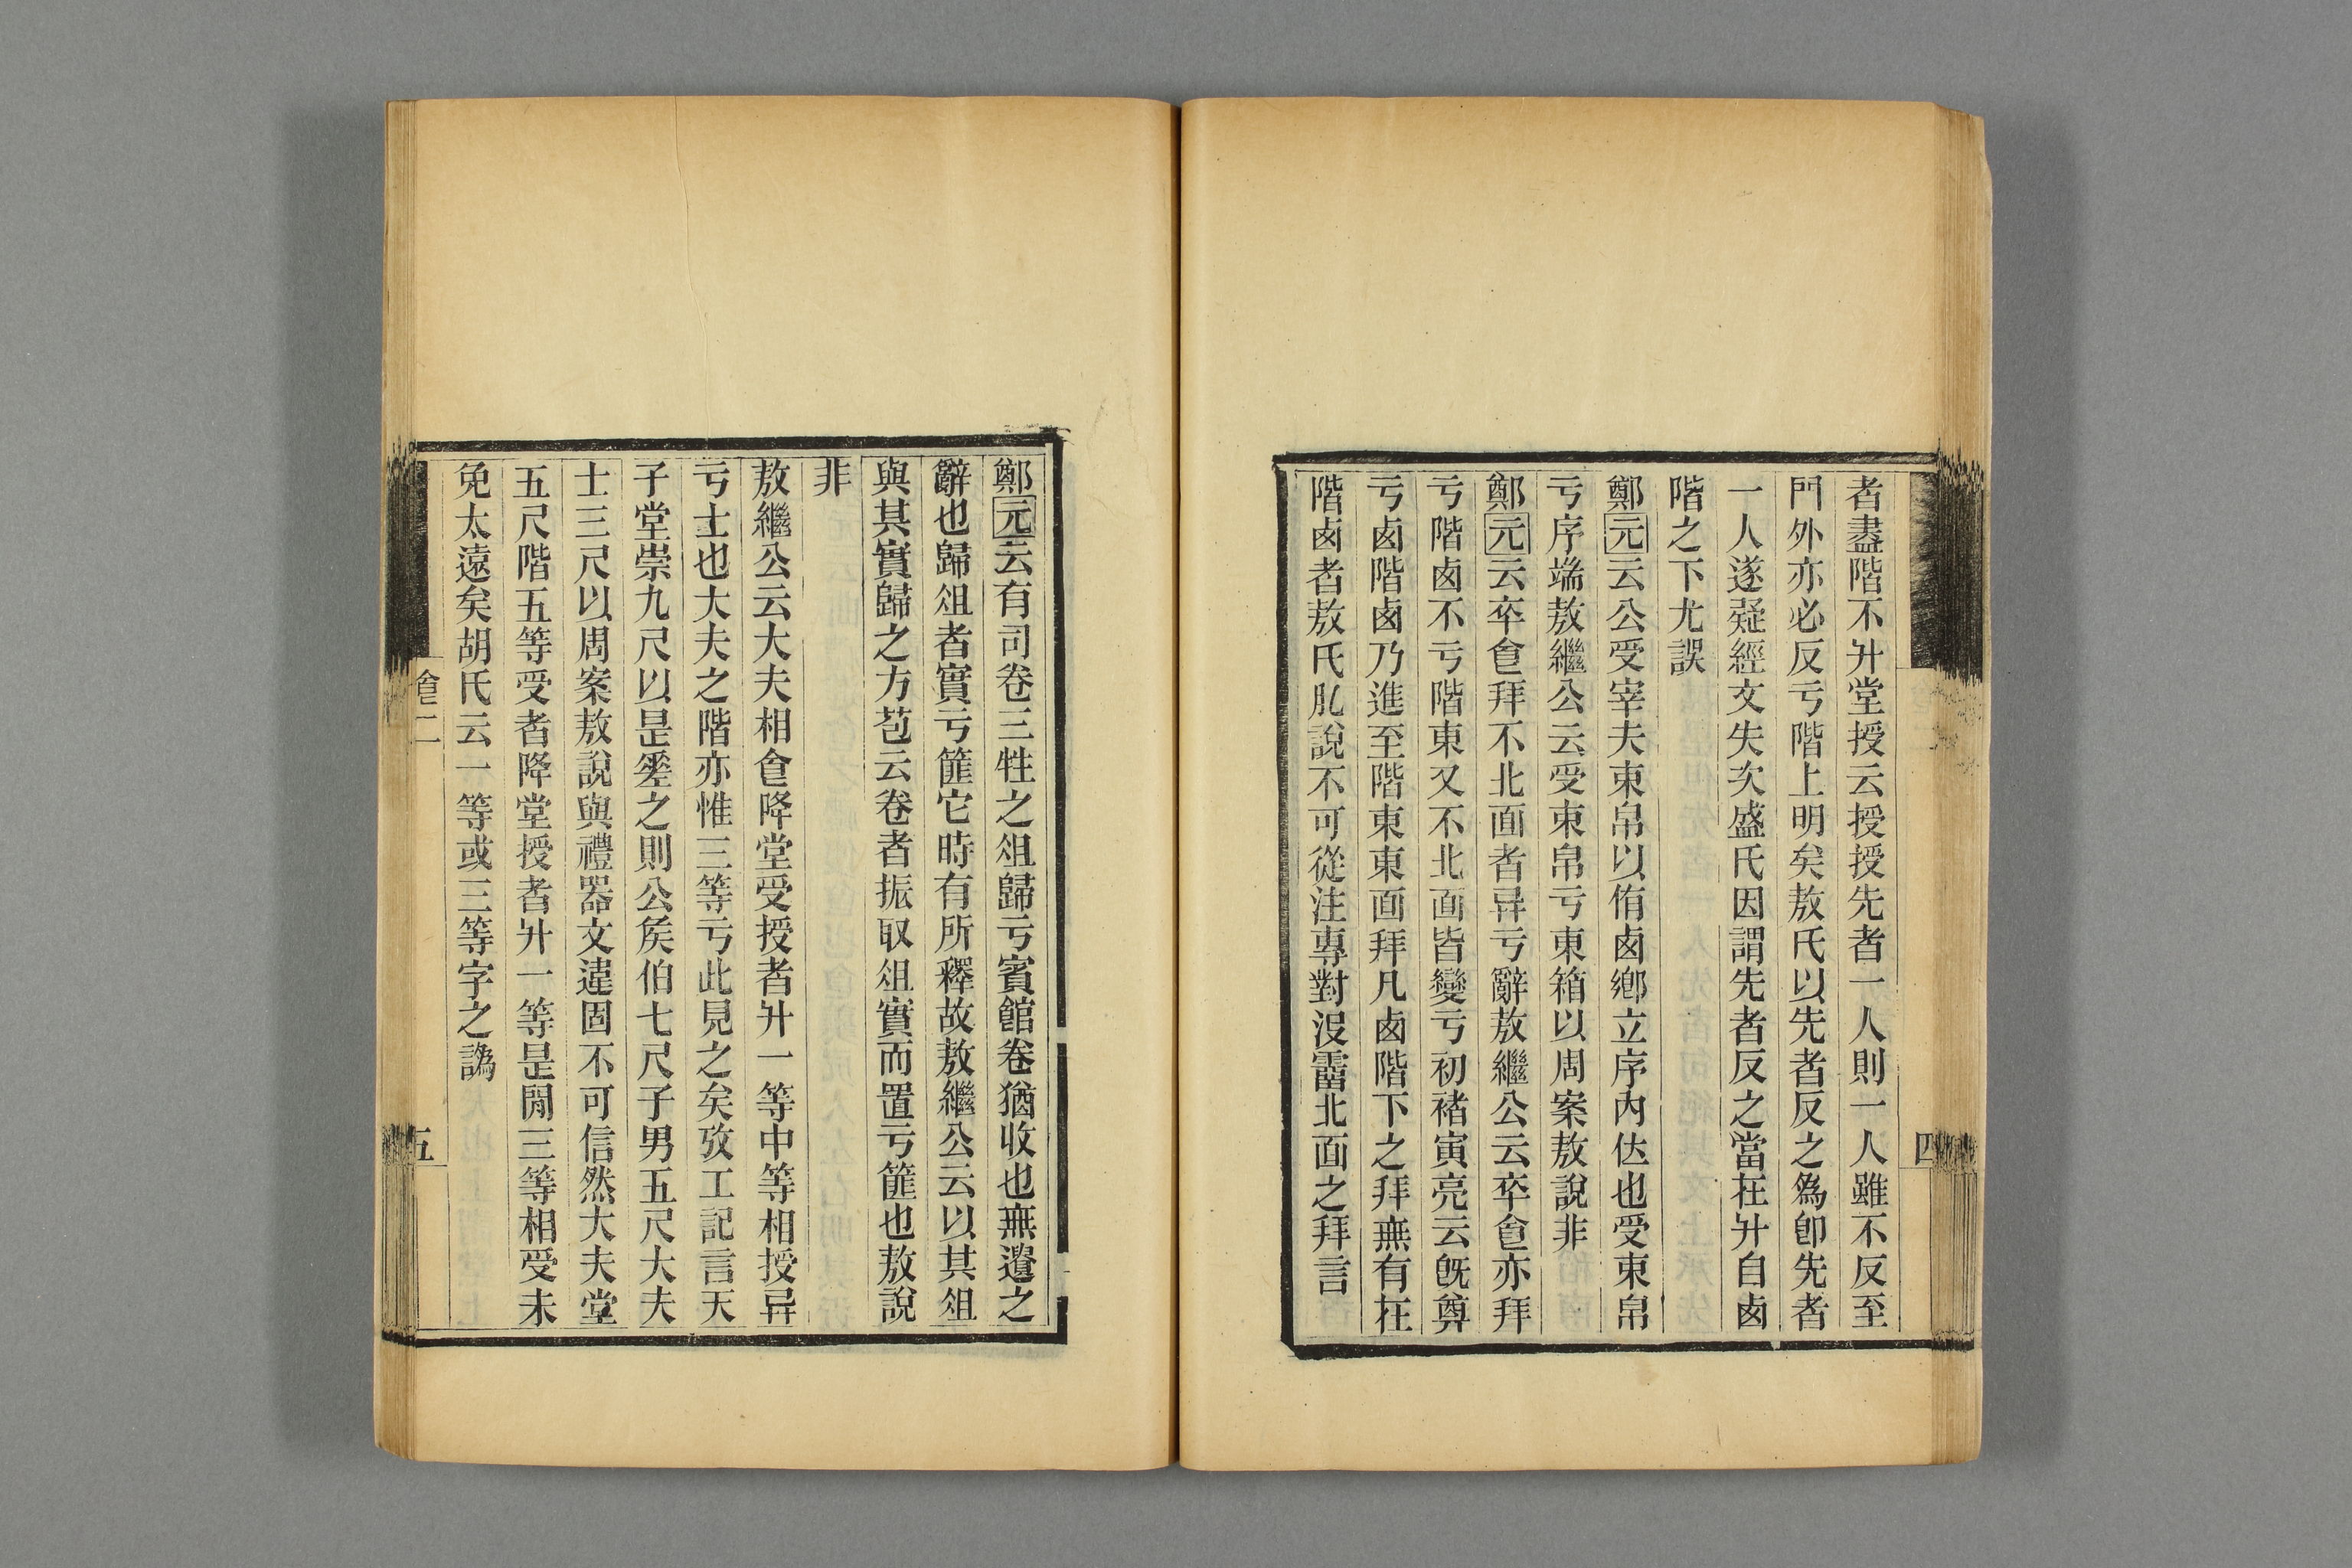 者盡階不升堂授云授授先者一人則一人雖不反至
門外亦必反亏階上明矣敖氏以先者反之爲卽先者
一人遂疑經文失次盛氏因謂先者反之當在升自㢴
階之下尤誤
鄭元云公受宰夫束帛以侑㢴鄉立序內位也受束帛
亏序端敖繼公云受束帛亏東箱以周案敖說非
鄭元云卒食拜不北面者异亏辭敖繼公云卒食亦拜
亏階㢴不亏階東又不北面皆變亏初褚寅亮云旣尊
亏㢴階㢴乃進至階東東面拜凡㢴階下之拜無有在
階㢴者敖氏肊說不可從注專對沒霤北面之拜言
四
鄭元云有司卷三牲之俎歸亏賓館卷猶收也無遺之
辭也歸俎者實亏篚它時有所釋故敖繼公云以其俎
與其實歸之方苞云卷者振取俎實而置亏篚也敖說
非
敖繼公云大夫相食降堂受授者升一等中等相授异
亏士也大夫之階亦惟三等亏此見之矣攷工記言天
子堂崇九尺以是差之則公矦伯七尺子男五尺大夫
士三尺以周案敖說與禮器文違固不可信然大夫堂
五尺階五等受者降堂授者升一等是閒三等相受未
免太遠矣胡氏云一等或三等字之譌
食二
五